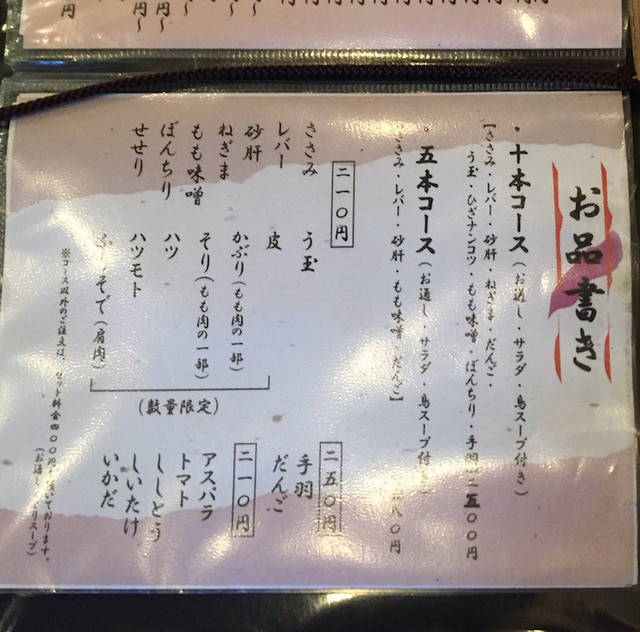 お品書き
・十本コース(お通し・サラダ・鳥スープ付き)
【ささみ・レバー・砂肝・ねぎま・だんご・
う玉・ひざナンコツ・もも味噌・ぼんちり・手羽 二五〇〇円
・五本コース(お通し・サラダ・鳥スープ付き)
【ささみ・レバー・砂肝・もも味噌・だんご】 八〇円
二一〇円
ささみ
レバー
砂肝
ねぎま
もも味噌
ぼんちり
せせり
う玉
皮
かぶり(もも肉の一部)
そり(もも肉の一部)
ハツ
ハツモト
ふりそで(肩肉)
(数量限定)
二五〇円
手羽
だんご
二一〇円
アスパラ
トマト
ししとう
しいたけ
いかだ
※コース以外のご注文は、セット料金四〇〇円 頂いております。
(お通し・ スープ)